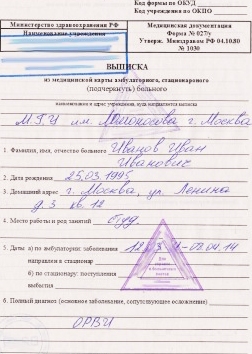 Код формы по ОКУД
Код учреждения по ОКПО
Министерство здравоохранения РФ
Наименование учреждения
Медицинская документация
Форма № 027/у
Утверж. Минздравом РФ 04.10.80
№ 1030
ВЫПИСКА
из медицинской карты амбулаторного, стационарного
(подчеркнуть) больного
наименование и адрес учреждения, куда направляется выписка
МГУ им. Ломоносова г. Москва
1. Фамилия, имя, отчество больного Иванов Иван
Иванович
2. Дата рождения 25.03.1995
3. Домашний адрес г. Москва, ул. Ленина
д. 3 кв. 12
4. Место работы и род занятий студ.
5. Даты: а) по амбулатории: заболевания -02.04.14
направлен в стационар
б) по стационару: поступления
выбытия
6. Полный диагноз (основное заболевание, сопутствующее осложнение)
ОРВИ
Для
справок
и больничных
листов